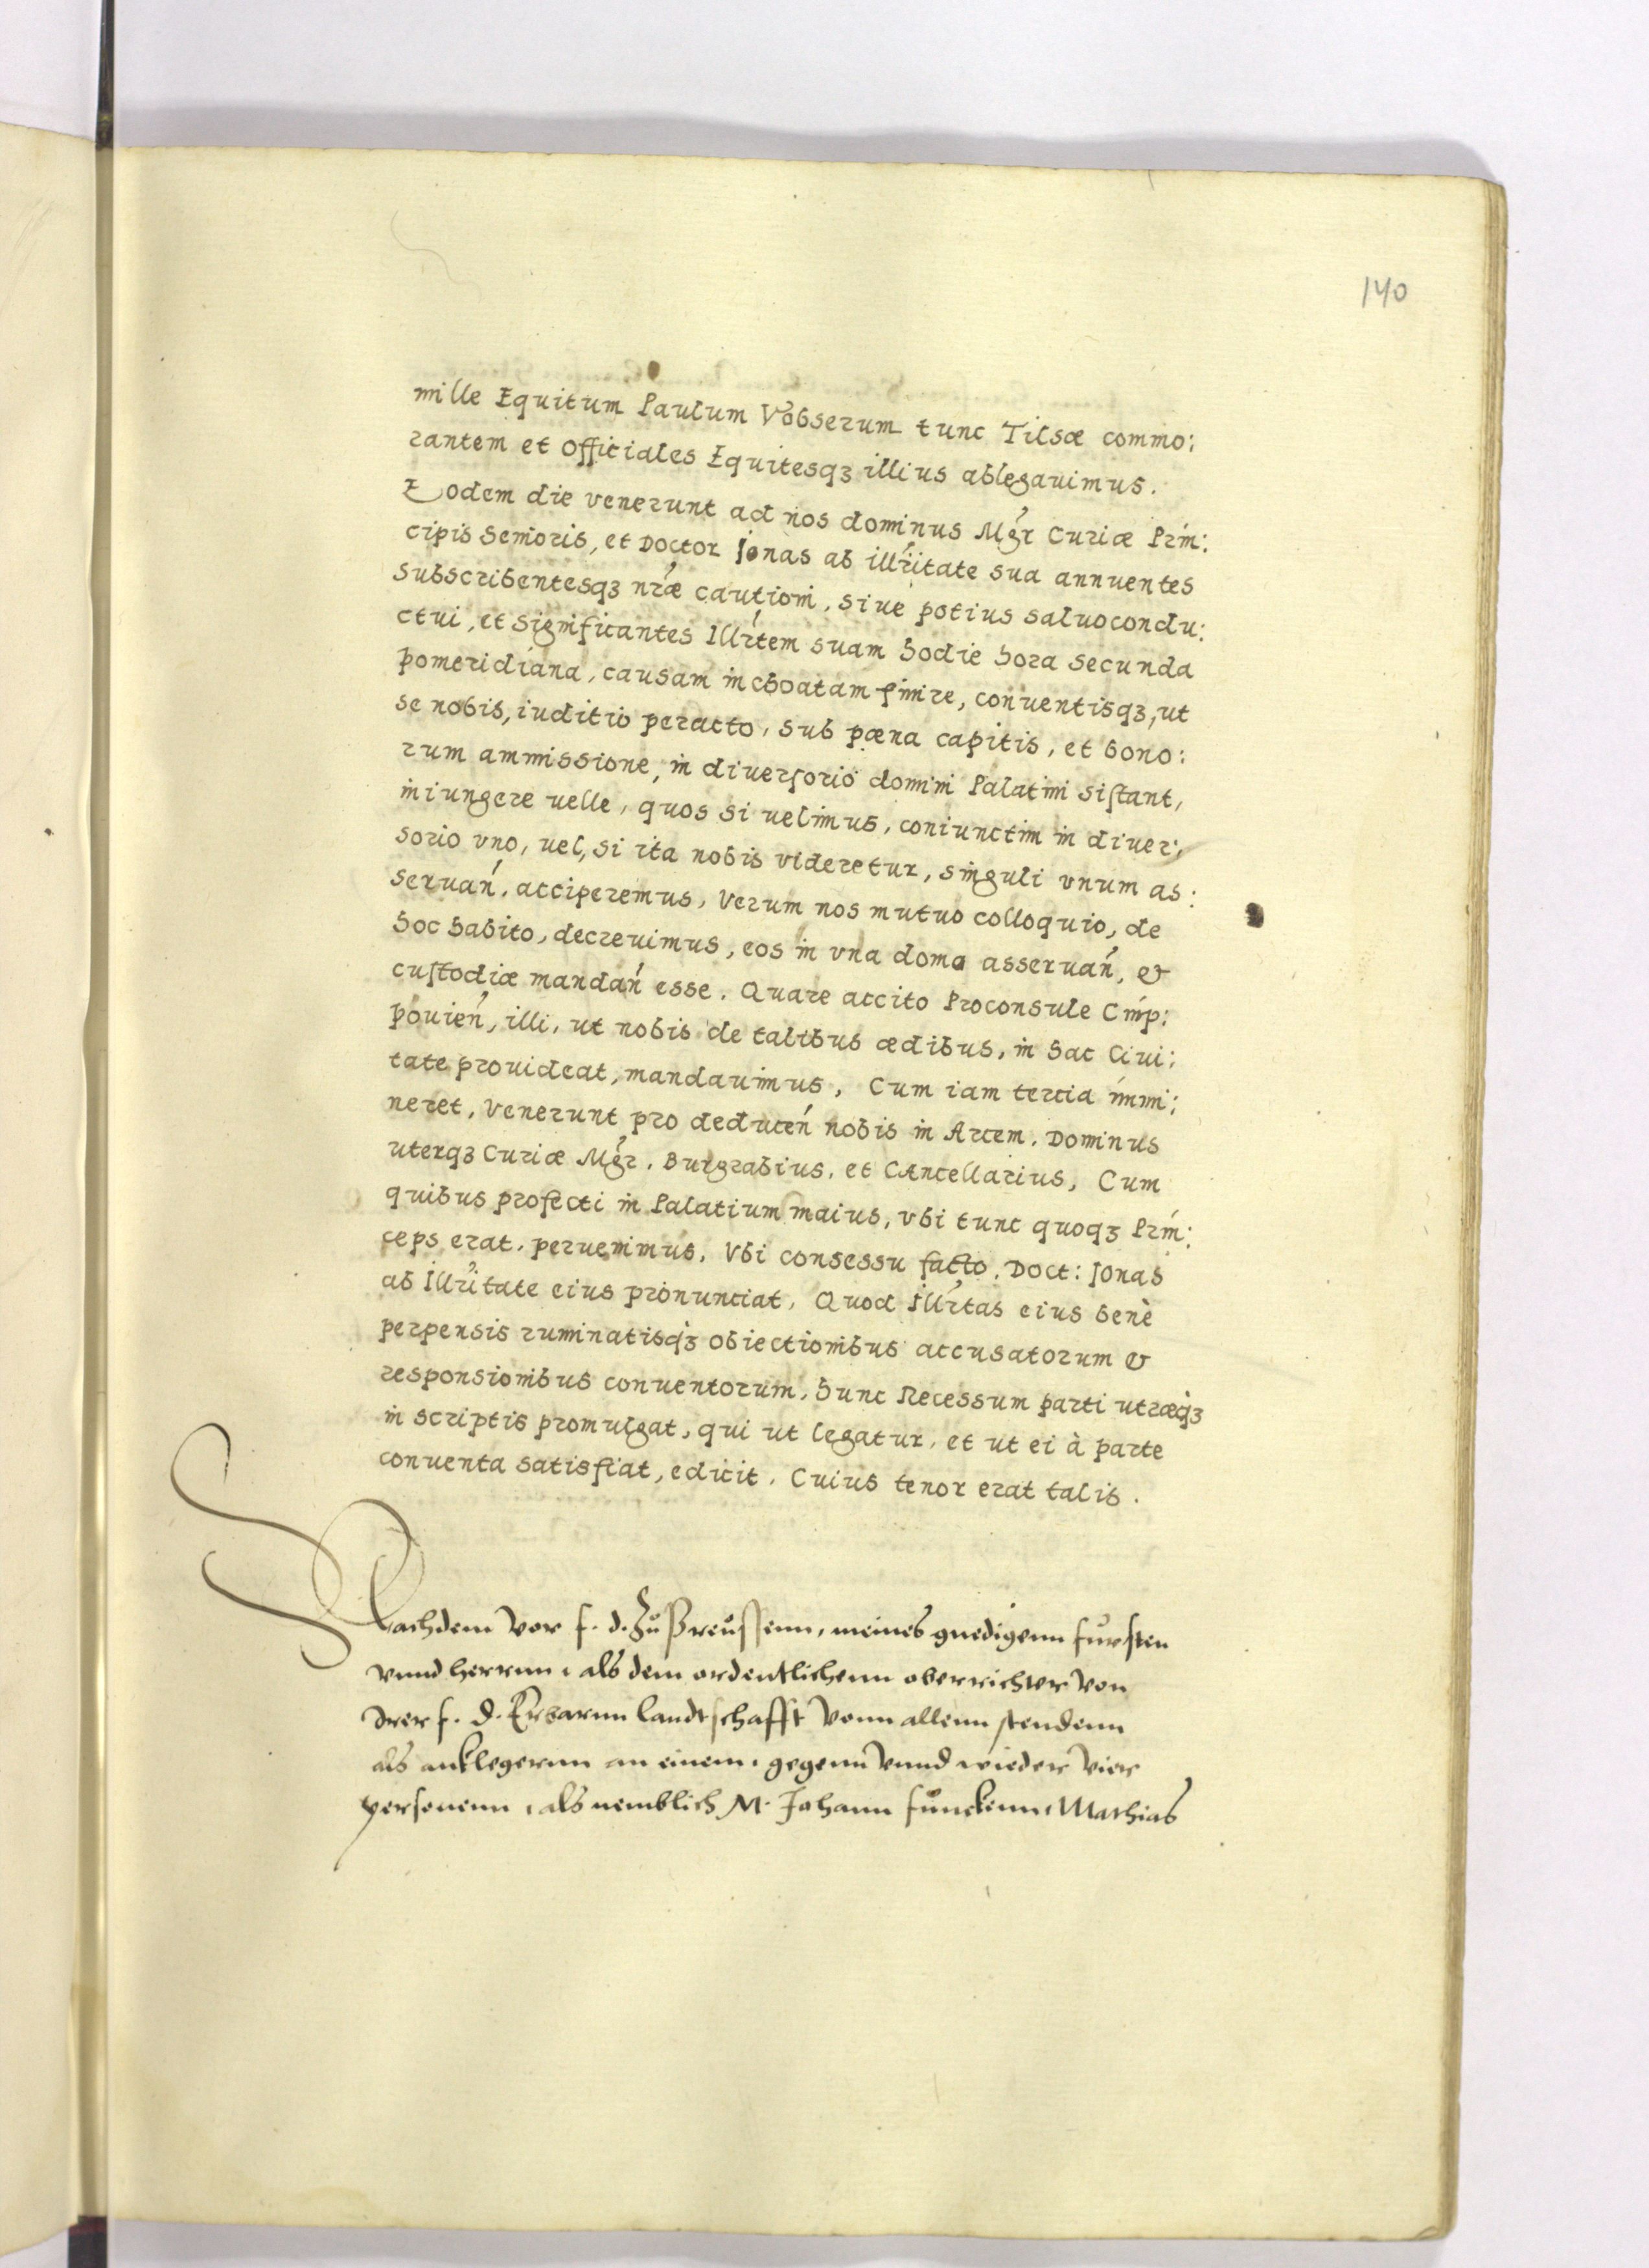 140
mille Equitum Paulum Vobserum tunc Tilsæ commo:
rantem et Officiales Equitesqȝ illius ablegauimus.
Eodem die venerunt ad nos dominus Mgr̃ Curiæ Prin:
cipis Senioris, et Doctor Jonas ab illr̃itate sua annuentes
subscribentesqȝ nr̃æ cautioni, siue potius saluocondu:
ctui, et significantes Illr̃tem suam hodie hora secunda
pomeridiana, causam inchoatam finire, conuentisqȝ, ut
se nobis, iuditio peracto, sub pœna capitis, et bono:
rum ammissione, in diuersorio domini Palatini sistant,
iniungere uelle, quos si uelimus, coniunctim in diuer:
sorio vno, uel, si ita nobis videretur, singuli vnum as:
seruan̄, acciperemus, Verum nos mutuo colloquio, de
hoc habito, decreuimus, eos in vna domo asseruan̄, &
custodiæ mandan̄ esse. Quare accito Proconsule Cnip:
houien̄, illi, ut nobis de talibus ædibus, in hac Ciui:
tate prouideat, mandauimus, Cum iam tertia immi:
neret, Venerunt pro deducen̄ nobis in Arcem, Dominus
uterqȝ Curiæ Mgr̃, Burgrabius, et Cancellarius, Cum
quibus profecti in Palatium maius, vbi tunc quoqȝ Prin:
ceps erat, peruenimus, Vbi consessu facto, Doct: Jonas
ab Illr̃itate eius pronunciat, Quod Illr̃tas eius benè
perpensis ruminatisqȝ obiectionibus accusatorum &
responsionibus conuentorum, hunc Recessum parti utræqȝ
in scriptis promulgat, qui ut legatur, et ut ei à parte
conuenta satisfiat, edicit. Cuius tenor erat talis.
Nachdem vor f. d. Zu Preussenn, meines gnedigenn fursten
vnnd herrnn, als dem ordentlichenn oberrichter von
Irer f. d. Erbarnn landtschafft vonn allenn stendenn
als anklegernn an einem, gegenn vnnd wieder vier
personenn, als nemblich M. Johann funckenn, Mathias